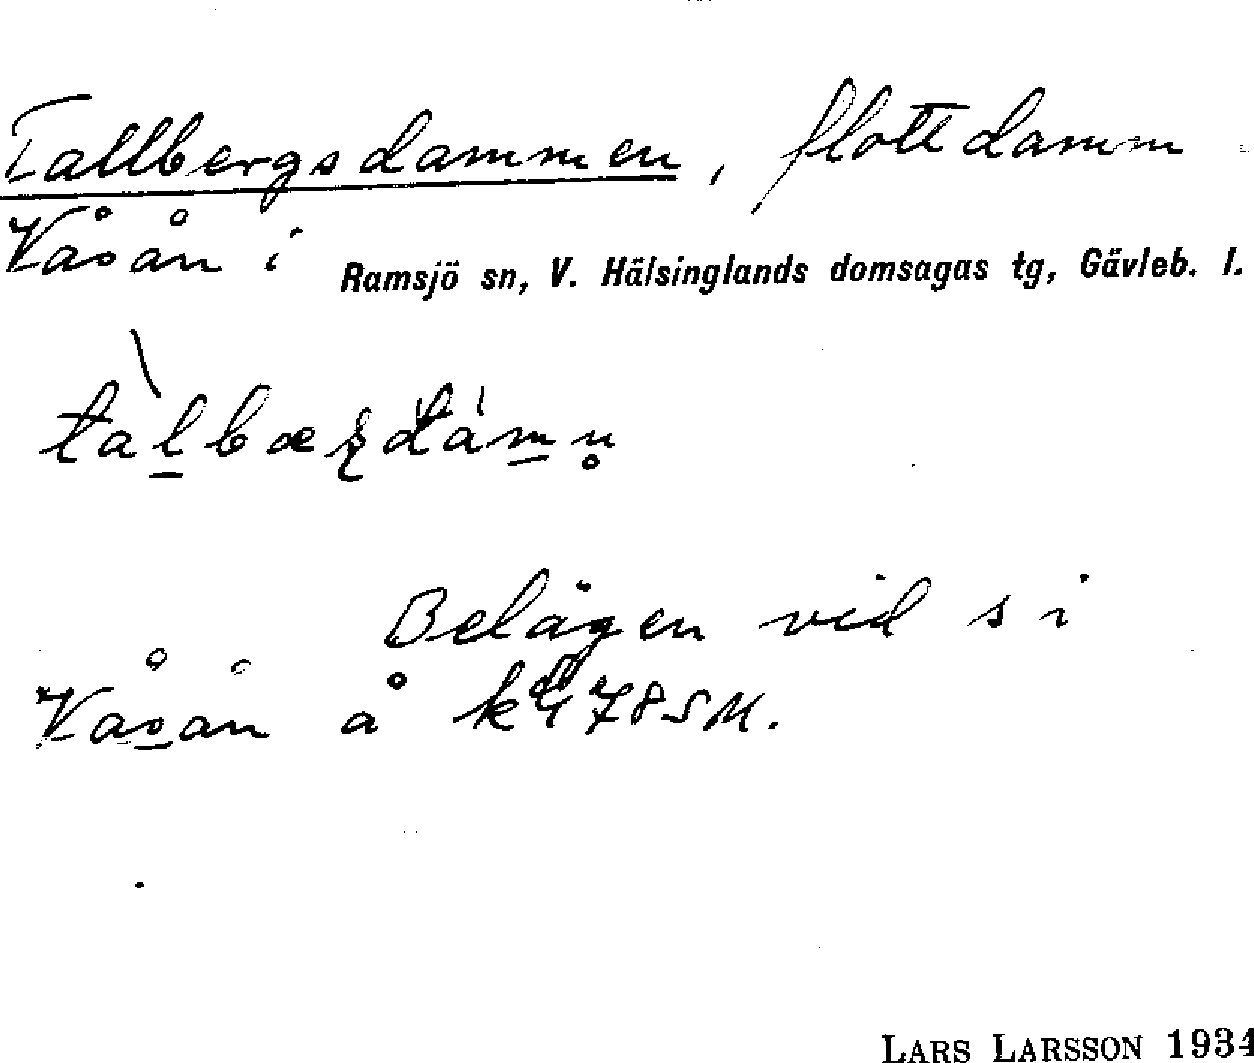 Tallbergsdammen, flottdamm
Våsån i Ramsjö sn, V. Hälsinglands domsagas tg, Gävleb. l.
Belägen vid s i
Våsån å k 478SM.
LARS LARSSON 1934